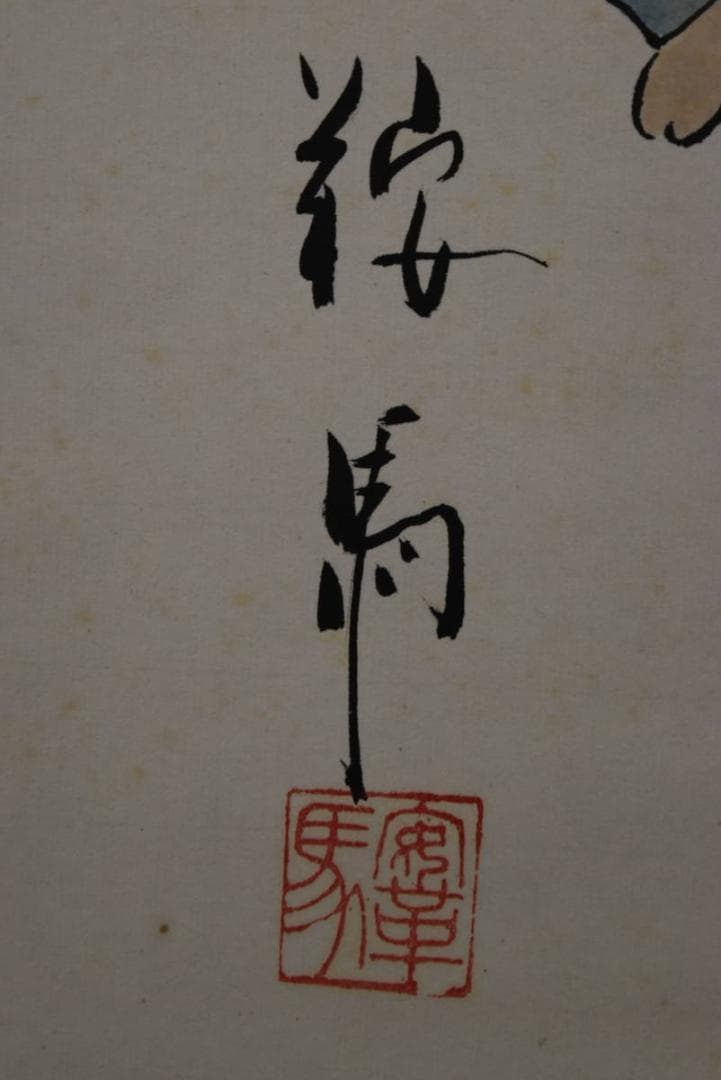 鞍
馬
鞍馬